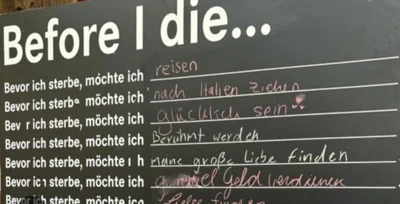 Before I die...
Bevor ich sterbe, möchte ich reisen
Bevor ich sterbe, möchte ich nach Italien ziehen
Bevor ich sterbe, möchte ich glücklich sein
Bevor ich sterbe, möchte ich Berühmt werden
Bevor ich sterbe, möchte ich meine große Liebe finden
Bevor ich sterbe, möchte ich Geld verdienen
Bevor ich sterbe, möchte ich Liebe finden